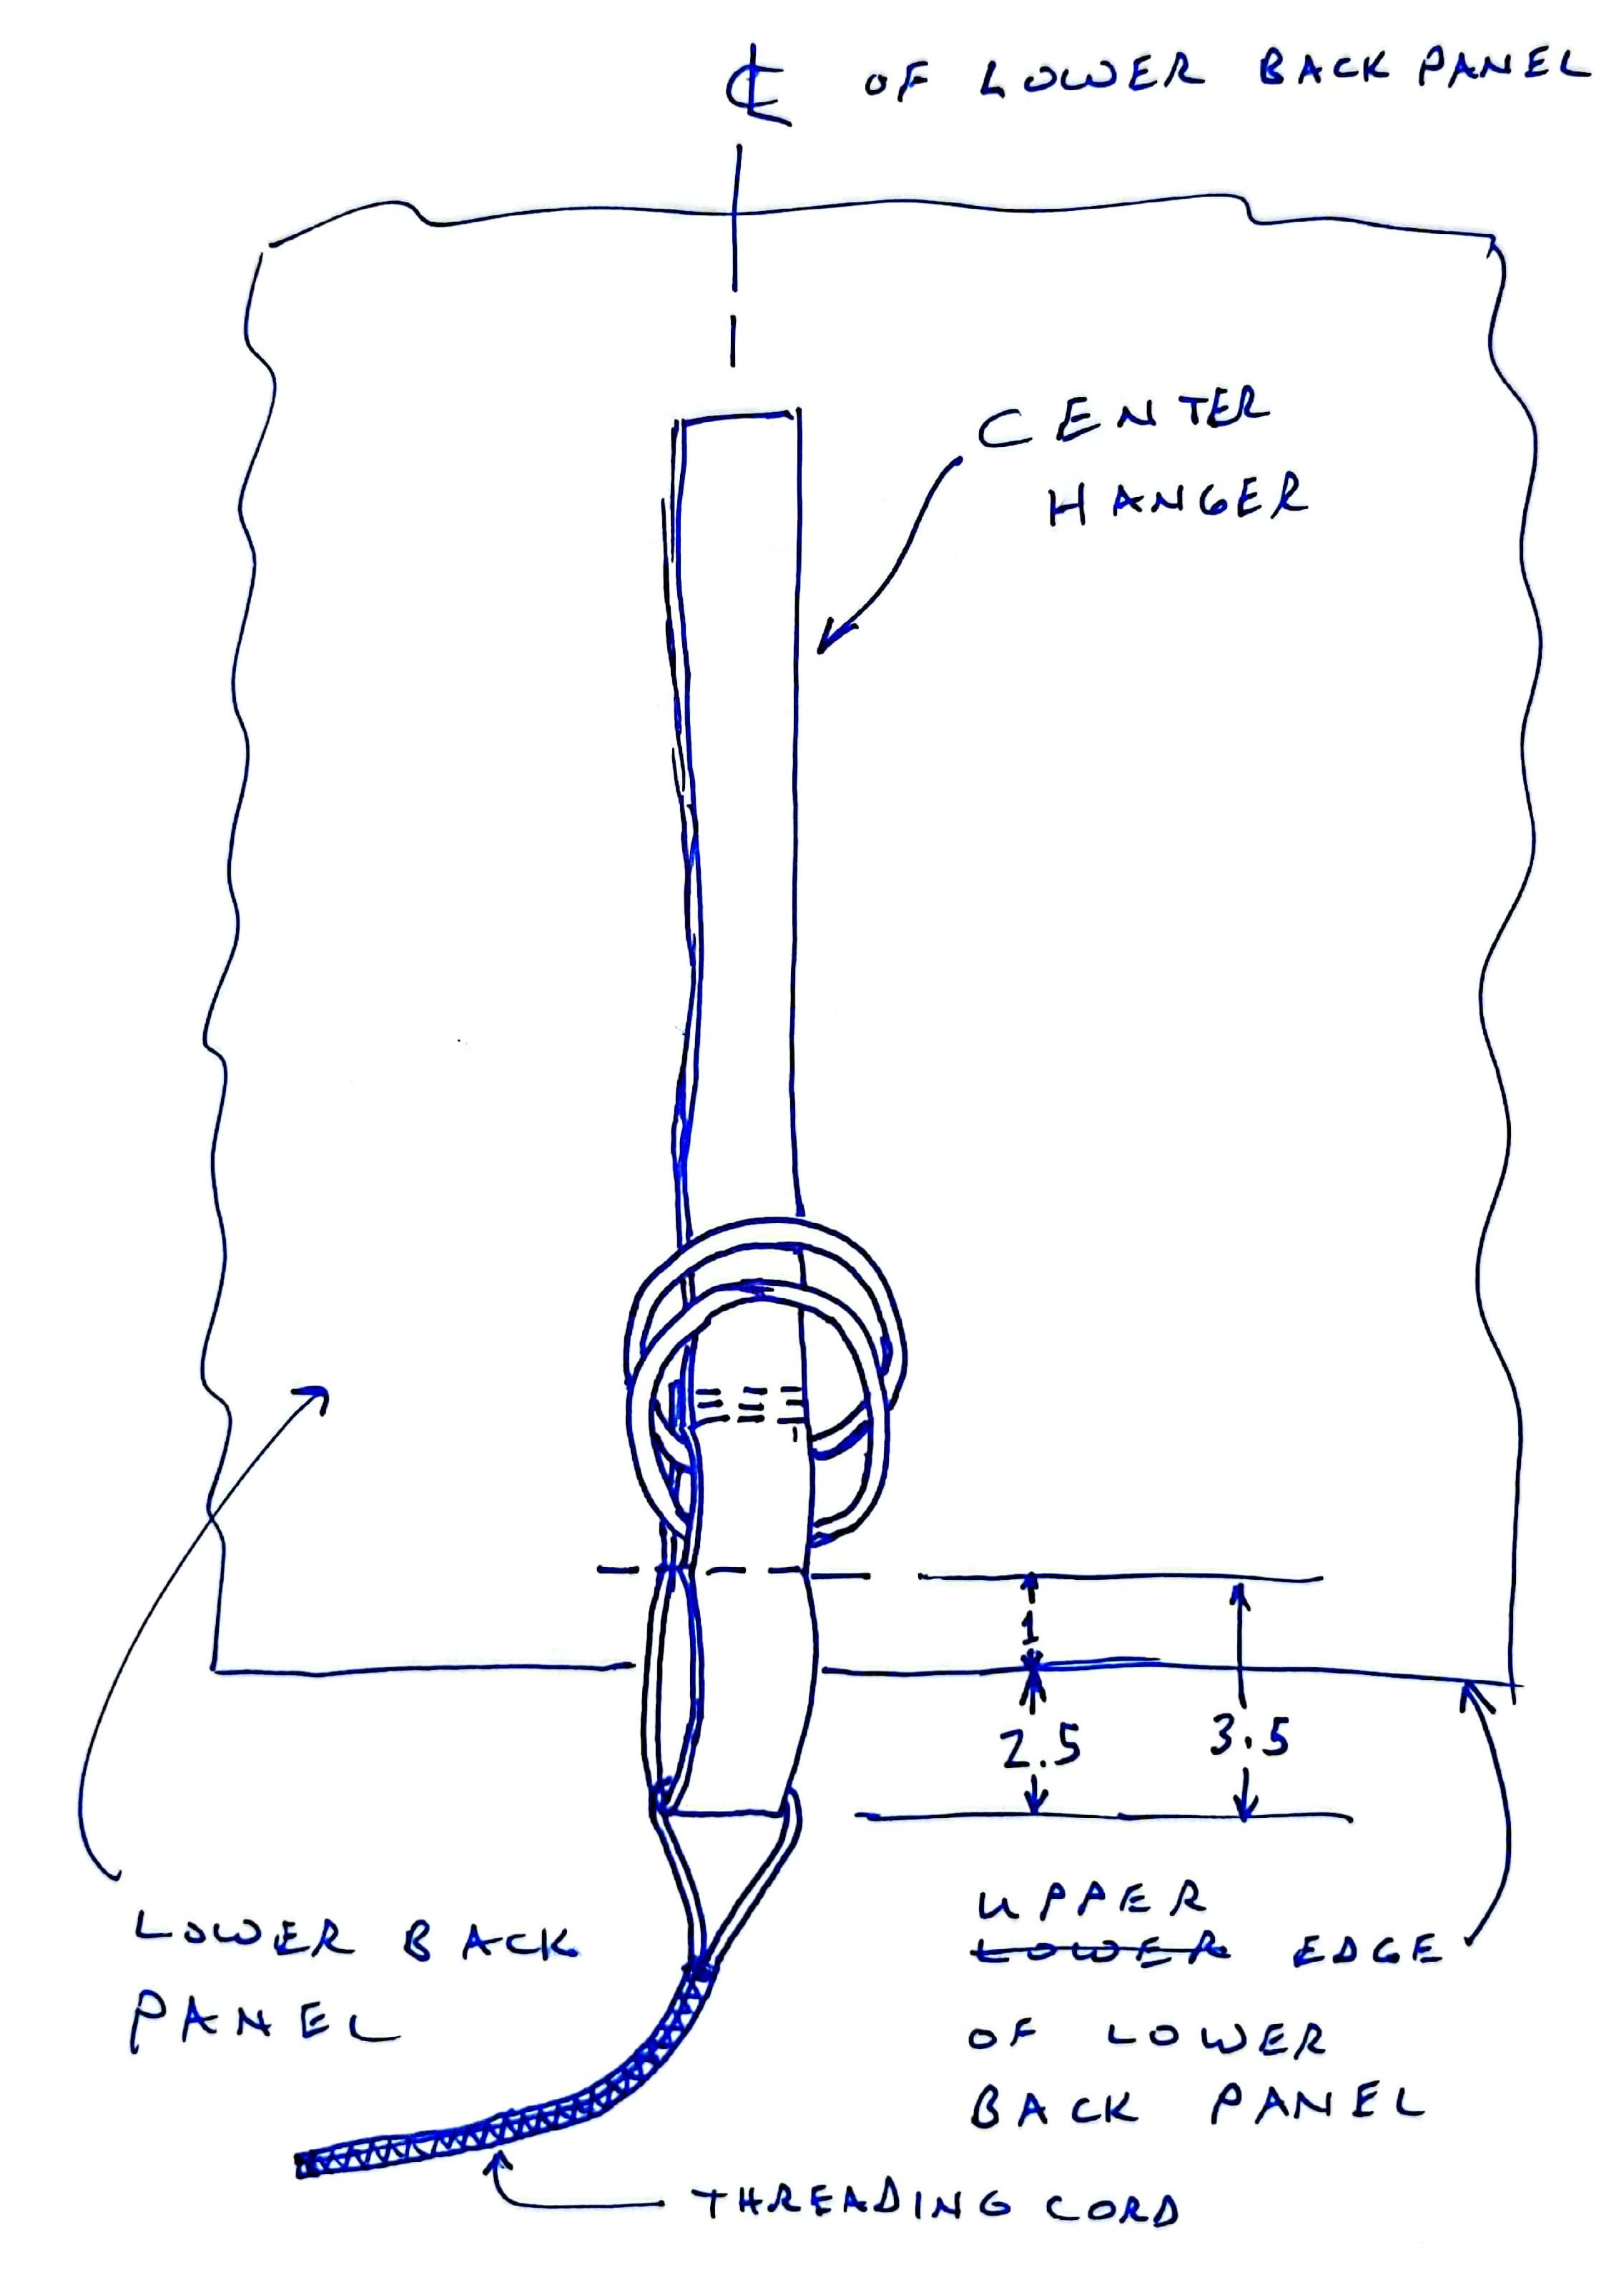 ℄ OF LOWER BACK PANEL
CENTER
HANGER
1
2.5 3.5
LOWER BACK
PANEL
UPPER
~~LOWER~~ EDGE
OF LOWER
BACK PANEL
THREADING CORD